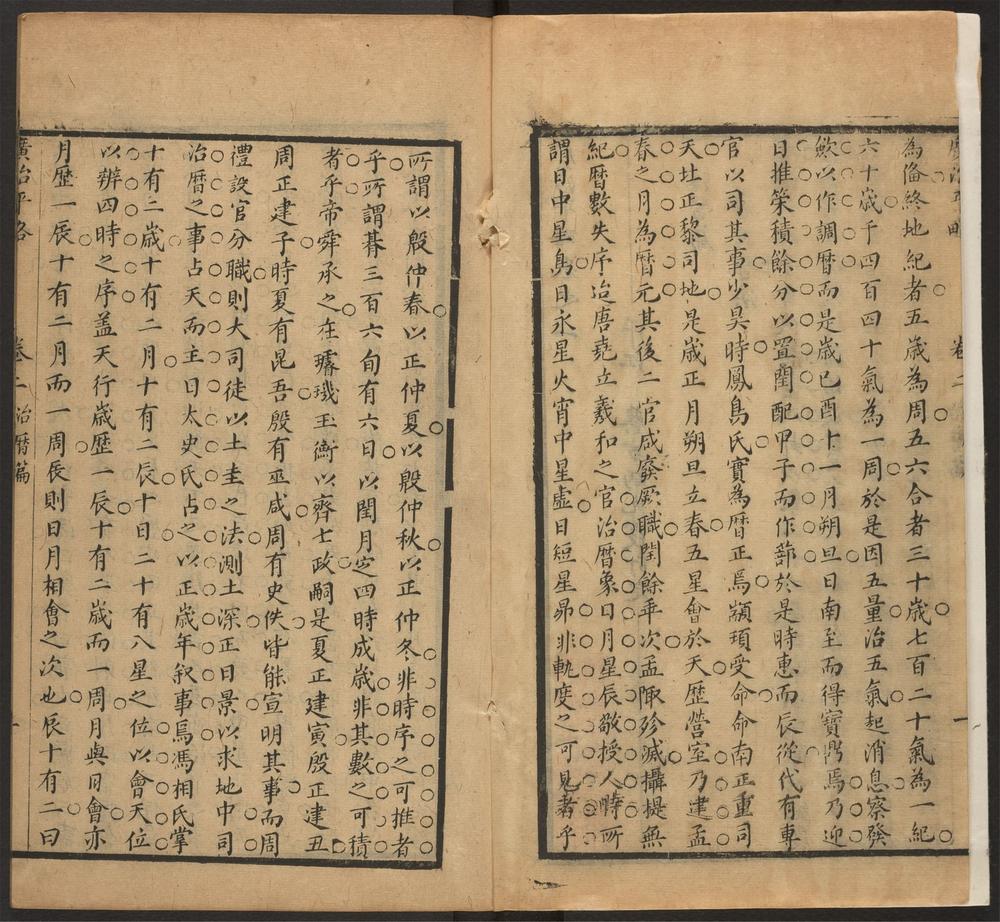 卷二
一
為俻終地紀者五歲為周五六合者三十歲七百二十氣為一紀
六十歲千四百四十氣為一周於是因五量治五氣起消息察發
斂以作調曆而是歲已酉十一月朔旦日南至而得寶鼎焉乃迎
日推策積餘分以置閏配甲子而作蔀於是時惠而辰從代有專
官以司其事少昊時鳳鳥氏實為曆正焉顓頊受命命南正重司
天北正黎司地是歲正月朔旦立春五星會於天歷營室乃建孟
春之月為曆元其後二官咸廢厥職閏餘乖次孟陬殄滅攝提無
紀曆數失序迨唐堯立羲和之官治曆象日月星辰敬授人時所
謂日中星鳥日永星火宵中星虛日短星昴非軌度之可見者乎
所謂以殷仲春以正仲夏以殷仲秋以正仲冬非時序之可推者
乎所謂朞三百六旬有六日以閏月定四時成歲非其數之可積
者乎帝舜承之在璿璣玉衡以齊七政嗣是夏正建寅殷正建丑
周正建子時夏有昆吾殷有巫咸周有史佚皆能宣明其事而周
禮設官分職則大司徒以土圭之法測土深正日景以求地中司
治曆之事占天而主日太史氏占之以正歲年叙事焉馮相氏掌
十有二歲十有二月十有二辰十日二十有八星之位以會天位
以辨四時之序盖天行歲歷一辰十有二歲而一周月與日會亦
月歷一辰十有二月而一周辰則日月相會之次也辰十有二曰
廣治平略
卷二
治曆篇
一